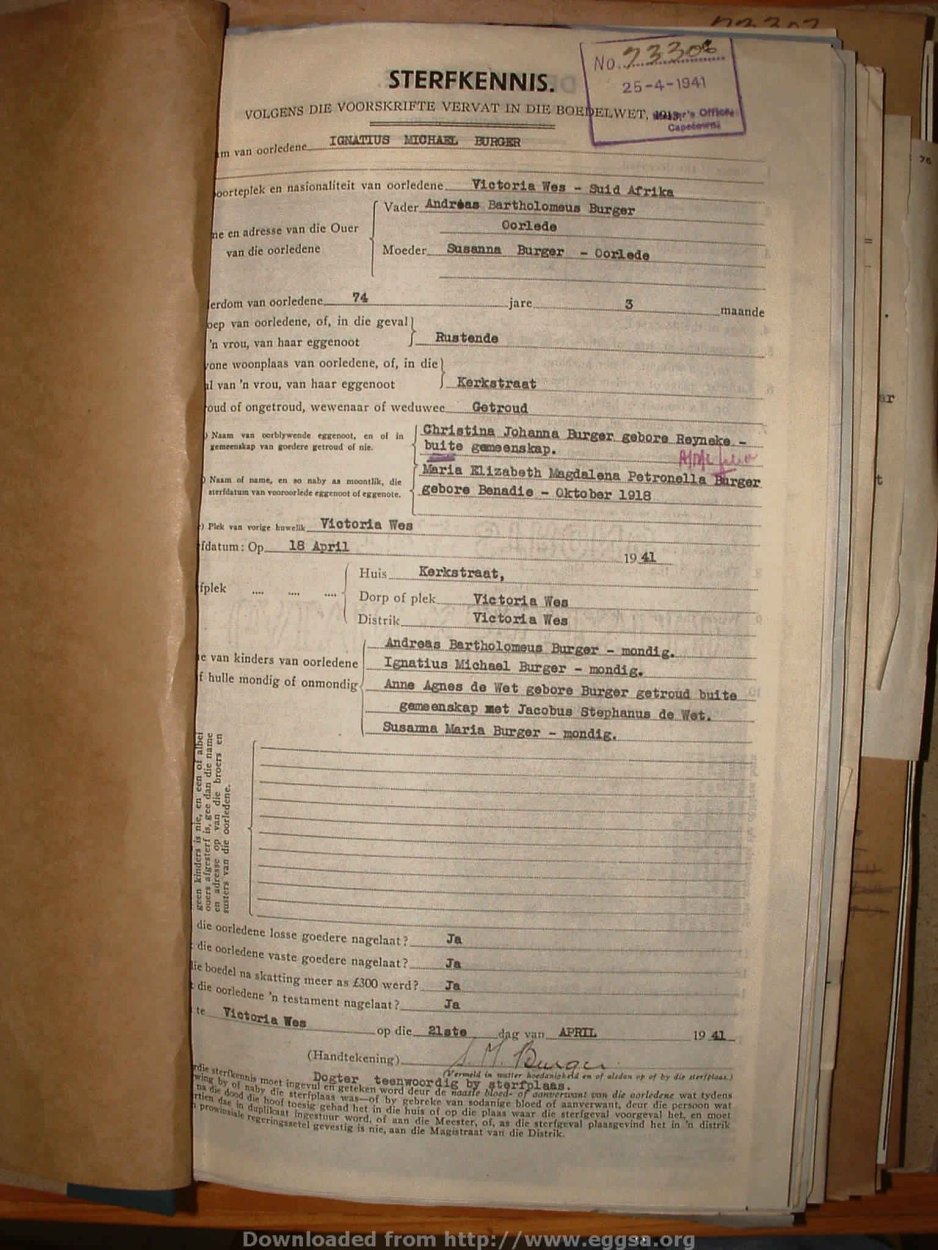 No. 73308
25-4-1941
Master's Office
Capetown.
STERFKENNIS.
VOLGENS DIE VOORSKRIFTE VERVAT IN DIE BOEDELWET, 1913.
am van oorledene IGNATIUS MICHAEL BURGER
oorteplek en nasionaliteit van oorledene Victoria Wes - Suid Afrika
Vader Andréas Bartholomeus Burger
me en adresse van die Ouer Oorlede
van die oorledene Moeder Susanna Burger - Oorlede
erdom van oorledene 74 jare 3 maande
oep van oorledene, of, in die geval
'n vrou, van haar eggenoot Rustende
one woonplaas van oorledene, of, in die
al van 'n vrou, van haar eggenoot Kerkstraat
oud of ongetroud, wewenaar of weduwee Getroud
) Naam van oorblywende eggenoot, en of in Christina Johanna Burger gebore Reyneke -
gemeenskap van goedere getroud of nie. buite gemeenskap.
) Naam of name, en so naby as moontlik, die Maria Elizabeth Magdalena Petronella Burger
sterfdatum van vooroorlede eggenoot of eggenote. gebore Benadie - Oktober 1918
) Plek van vorige huwelik Victoria Wes
fdatum: Op 18 April 19 41
Huis Kerkstraat,
fplek .... .... .... Dorp of plek Victoria Wes
Distrik Victoria Wes
Andreas Bartholomeus Burger - mondig.
e van kinders van oorledene Ignatius Michael Burger - mondig.
f hulle mondig of onmondig Anne Agnes de Wet gebore Burger getroud buite
gemeenskap met Jacobus Stephanus de Wet.
Susanna Maria Burger - mondig.
geen kinders is nie, en een of albei
ouers afgesterf is, gee dan die name
en adresse op van die broers en
susters van die oorledene.
die oorledene losse goedere nagelaat? Ja
die oorledene vaste goedere nagelaat? Ja
ie boedel na skatting meer as £300 werd? Ja
die oorledene 'n testament nagelaat? Ja
te Victoria Wes op die 21ste dag van APRIL 19 41
(Handtekening) S. M. Burger
(Vermeld in watter hoedanigheid en of aldan op of by die sterfplaas.)
Dogter teenwoordig by sterfplaas.
rdie sterfkennis moet ingevul en geteken word deur de naaste bloed- of aanverwant van die oorledene wat tydens
wing by of naby die sterfplaas was—of by gebreke van sodanige bloed of aanverwant, deur die persoon wat
na die dood die hoof toesig gehad het in die huis of op die plaas waar die sterfgeval voorgeval het, en moet
rtien dae in duplikaat ingestuur word, of aan die Meester, of, as die sterfgeval plaasgevind het in 'n distrik
provinsiale regeringssetel gevestig is nie, aan die Magistraat van die Distrik.
Downloaded from http://www.eggsa.org